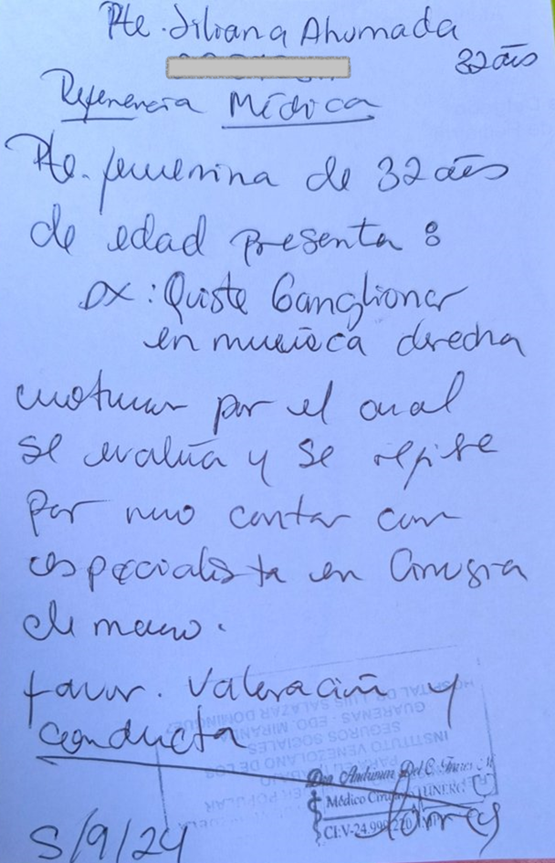 Pte. Jiliana Ahumada
32 años
Referencia Médica
Pte. femenina de 32 años
de edad presenta :
DX : Quiste Ganglionar
en muñeca derecha
por el cual
se evalúa y se
por no contar con
especialista en Cirugía
de mano.
favor. Valoración y
conducta
HOSPITAL DR. LUIS SALAZAR DOMINGUEZ
GUARENAS - EDO. MIRANDA
SEGUROS SOCIALES
INSTITUTO VENEZOLANO DE LOS
Médico Cirujano UNERG
5/9/24